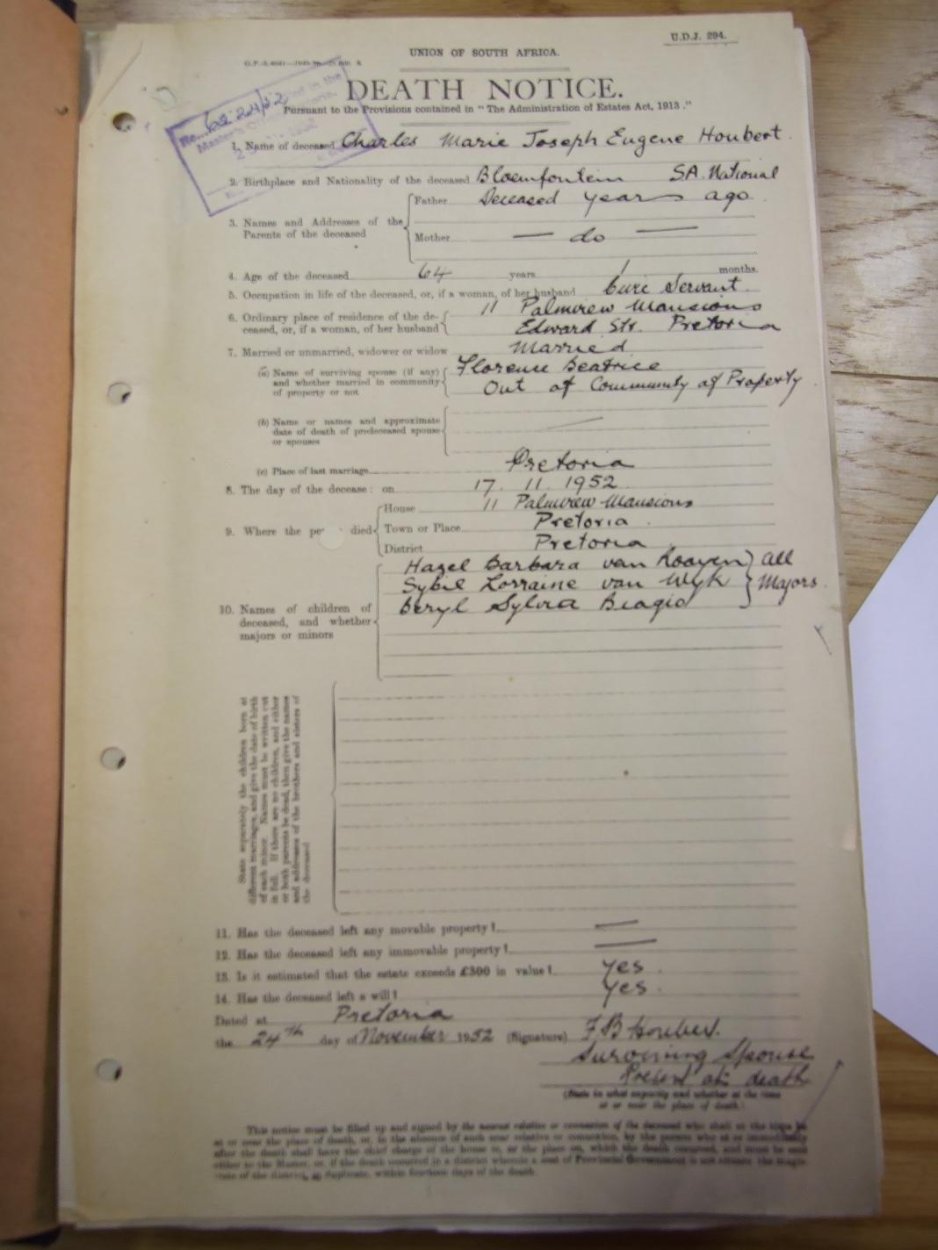 U.D.J. 294.
UNION OF SOUTH AFRICA.
DEATH NOTICE.
Pursuant to the Provisions contained in "The Administration of Estates Act, 1913."
No. 6224/52
1. Name of deceased Charles Marie Joseph Eugene Houbert
2. Birthplace and Nationality of the deceased Bloemfontein SA. National
3. Names and Addresses of the Parents of the deceased
Father Deceased years ago
Mother — do —
4. Age of the deceased 64 years 1 months.
5. Occupation in life of the deceased, or, if a woman, of her husband Civil Servant
6. Ordinary place of residence of the de-
ceased, or, if a woman, of her husband
11 Palmview Mansions
Edward Str. Pretoria
7. Married or unmarried, widower or widow Married
(a) Name of surviving spouse (if any)
and whether married in community
of property or not
Florence Beatrice
Out of Community of Property
(b) Name or names and approximate
date of death of predeceased spouse
or spouses —
(c) Place of last marriage Pretoria
8. The day of the decease: on 17. 11. 1952
9. Where the died
House 11 Palmview Mansions
Town or Place Pretoria
District Pretoria
10. Names of children of
deceased, and whether
majors or minors
Hazel Barbara van Rooyen
Sybil Lorraine van Wyk
Beryl Sylvia Biagio
All
Majors.
State separately the children born of
different marriages, and give the date of birth
of each minor. Names must be written out
in full. If there are no children, and either
or both parents be dead, then give the names
and addresses of the brothers and sisters of
the deceased
11. Has the deceased left any movable property? —
12. Has the deceased left any immovable property? —
13. Is it estimated that the estate exceeds £300 in value? Yes.
14. Has the deceased left a will? Yes.
Dated at Pretoria
the 24th day of November 1952 (Signature) F B Houbert.
Surviving Spouse
Present at death
(State in what capacity and whether at the time
at or near the place of death.)
This notice must be filled up and signed by the nearest relative or connexion of the deceased who shall at the time be
at or near the place of death, or, in the absence of such near relative or connexion, by the person who at or immediately
after the death shall have the chief charge of the house in, or the place on, which the death occurred, and must be sent
either to the Master, or, if the death occurred in a district wherein a seat of Provincial Government is not situate, the Magis-
trate of the district, in duplicate, within fourteen days of the death.